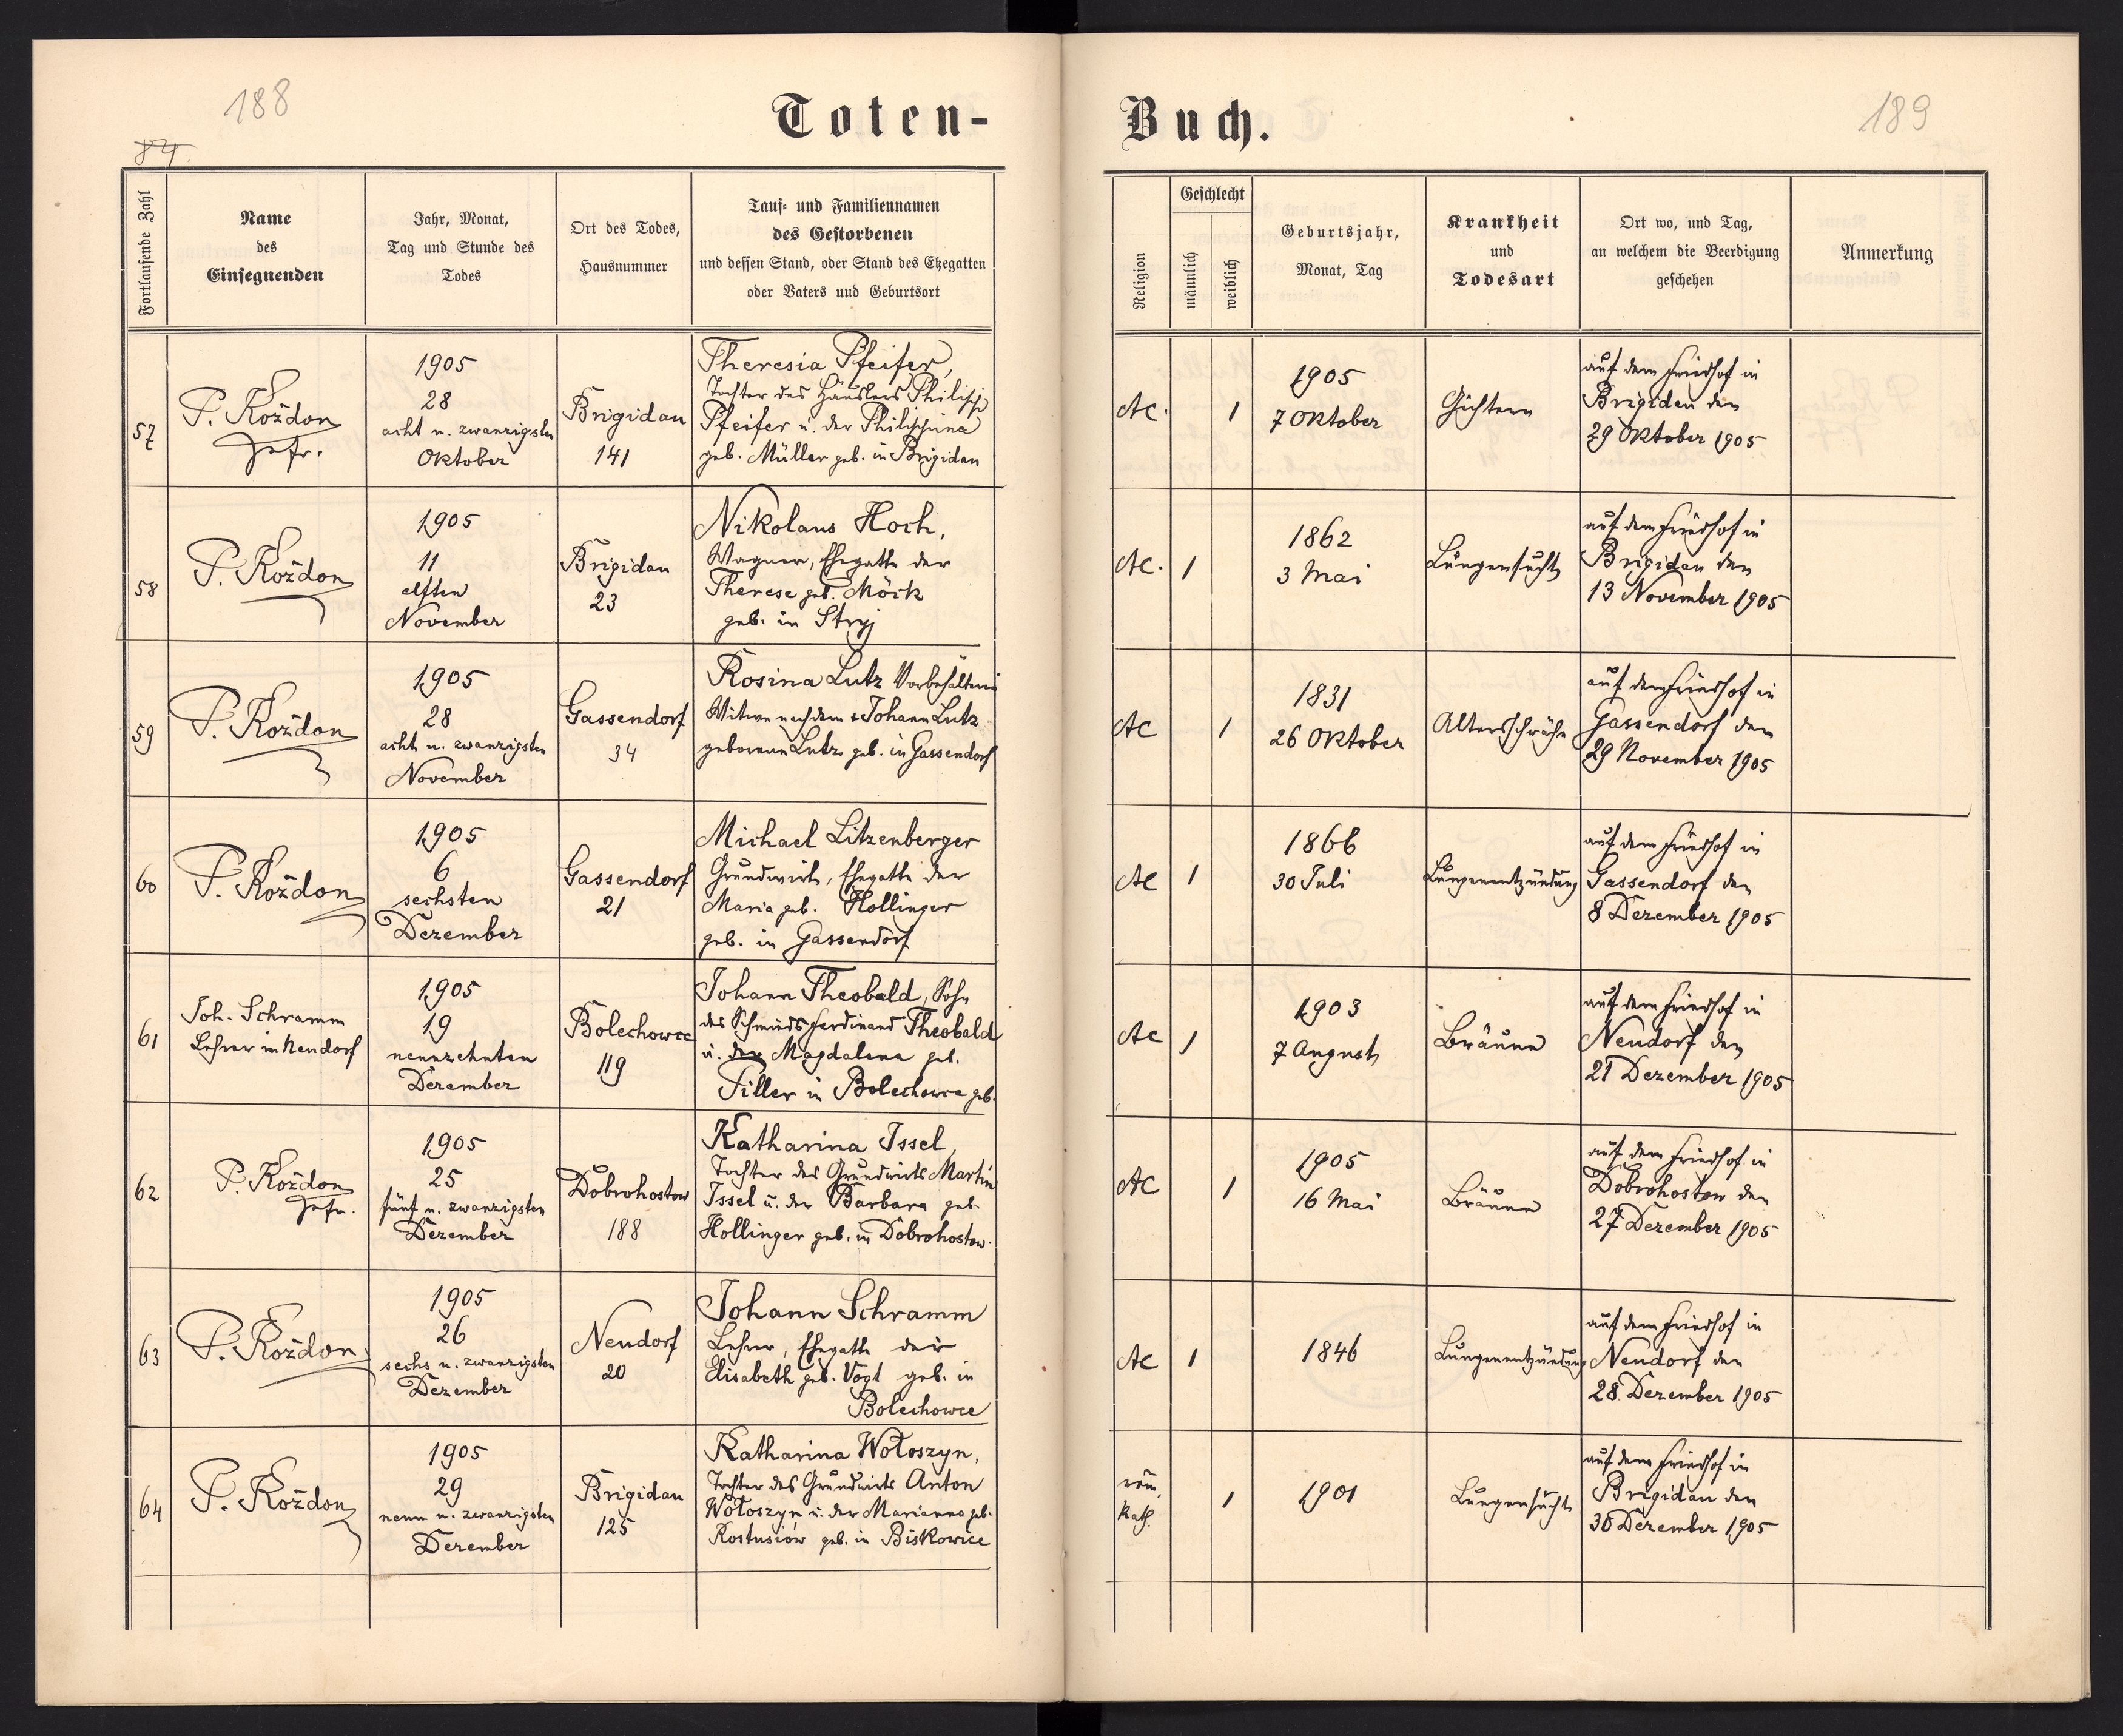 188
84.
Toten-
Fortlaufende Zahl
Name
des
Einsegnenden
Jahr, Monat,
Tag und Stunde des
Todes
Ort des Todes,
Hausnummer
Tauf- und Familiennamen
des Gestorbenen
und dessen Stand, oder Stand des Ehegatten
oder Vaters und Geburtsort
57
P. Kożdon
1905
28
acht u. zwanzigsten
Oktober
Brigidau
141
Theresia Pfeifer,
Tochter des Häuslers Philipp
Pfeifer u. der Philippina
geb. Müller geb. in Brigidau
58
P. Kożdon
1905
11
elften
November
Brigidau
23
Nikolaus Hoch,
Wagner, Ehegatte der
Therese geb. Möck
geb. in Stryj
59
P. Kożdon
1905
28
acht u. zwanzigsten
November
Gassendorf
34
Rosina Lutz
Witwe nach dem + Johann Lutz
geborene Lutz geb. in Gassendorf
60
P. Kożdon
1905
6
sechsten
Dezember
Gassendorf
21
Michael Litzenberger
Grundwirt, Ehegatte der
Maria geb. Hollinger
geb. in Gassendorf
61
Joh. Schramm
Lehrer in Neudorf
1905
19
neunzehnten
Dezember
Bolechowce
119
Johann Theobald, Sohn
des Schmieds Ferdinand Theobald
u. der Magdalena geb.
Tiller in Bolechowce geb.
62
P. Kożdon
1905
25
fünf u. zwanzigsten
Dezember
Dobrohostow
188
Katharina Issel,
Tochter des Grundwirts Martin
Issel u. der Barbara geb.
Hollinger geb. in Dobrohostow.
63
P. Kożdon
1905
26
sechs u. zwanzigsten
Dezember
Neudorf
20
Johann Schramm
Lehrer, Ehegatte der
Elisabeth geb. Vogt geb. in
Bolechowce
64
P. Kożdon
1905
29
neun u. zwanzigsten
Dezember
Brigidau
125
Katharina Wołoszyn,
Tochter des Grundwirts Anton
Wołoszyn u. der Marianna geb.
Kostusiów geb. in Biskowice
189
Buch.
Religion
Geschlecht
männlich
weiblich
Geburtsjahr,
Monat, Tag
Krankheit
und
Todesart
Ort wo, und Tag,
an welchem die Beerdigung
geschehen
Anmerkung
AC.
1
1905
7 Oktober
Gichtern
auf dem Friedhof in
Brigidau den
29 Oktober 1905
AC.
1
1862
3 Mai
Lungensucht
auf dem Friedhof in
Brigidau den
13 November 1905
AC
1
1831
26 Oktober
Altersschwäche
auf dem Friedhof in
Gassendorf den
29 November 1905
AC
1
1866
30 Juli
Lungenentzündung
auf dem Friedhof in
Gassendorf den
8 Dezember 1905
AC
1
1903
7 August
Bräune
auf dem Friedhof in
Neudorf den
21 Dezember 1905
AC
1
1905
16 Mai
Bräune
auf dem Friedhof in
Dobrohostow den
27 Dezember 1905
AC
1
1846
Lungenentzündung
auf dem Friedhof in
Neudorf den
28. Dezember 1905
röm.
kath.
1
1901
Lungensucht
auf dem Friedhof in
Brigidau den
30 Dezember 1905